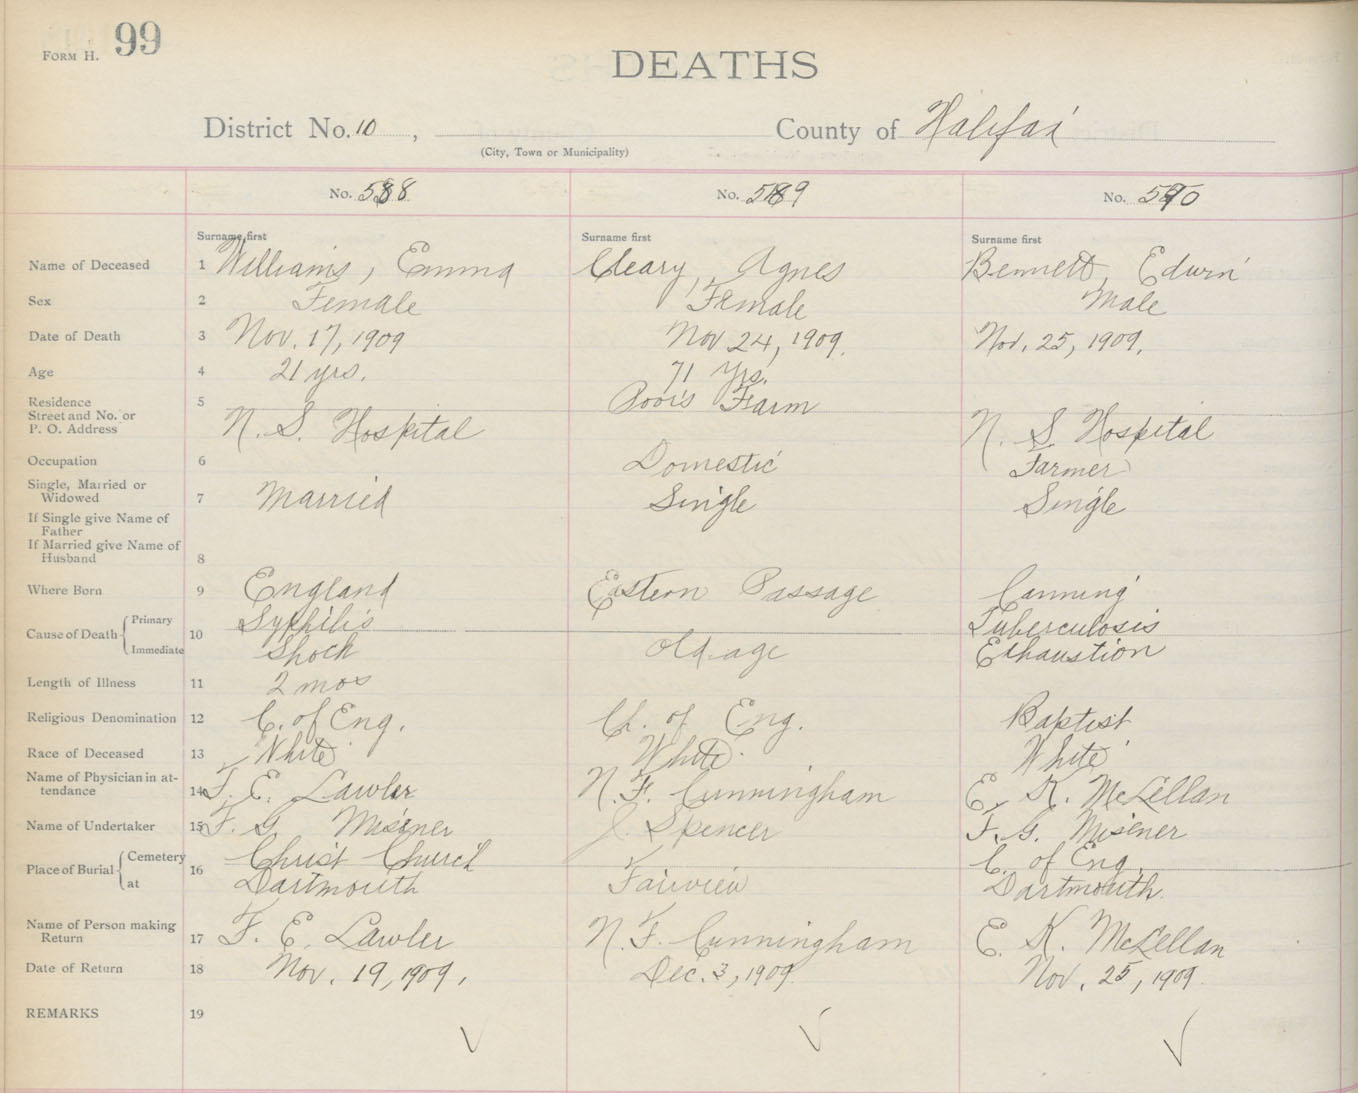 FORM H. 99
DEATHS
District No. 10, County of Halifax
(City, Town or Municipality)
No. 588 No. 589 No. 590
Surname first Surname first Surname first
Name of Deceased 1 Williams, Emma Cleary, Agnes Bennett, Edwin
Sex 2 Female Female Male
Date of Death 3 Nov. 17, 1909 Nov 24, 1909. Nov. 25, 1909.
Age 4 21 yrs. 71 yrs.
Residence 5 Poor's Farm
Street and No. or
P. O. Address N. S. Hospital N. S. Hospital
Occupation 6 Domestic Farmer
Single, Married or
Widowed 7 Married Single Single
If Single give Name of
Father
If Married give Name of
Husband 8
Where Born 9 England Eastern Passage Canning
Cause of Death Primary 10 Syphilis Tuberculosis
Immediate Shock Old age Exhaustion
Length of Illness 11 2 mos
Religious Denomination 12 C. of Eng. Ch. of Eng. Baptist
Race of Deceased 13 White White White
Name of Physician in at-
tendance 14 F. E. Lawler N. F. Cunningham E. K. McLellan
Name of Undertaker 15 F. G. Misener J. Spencer F. G. Misener
Place of Burial Cemetery 16 Christ Church C. of Eng.
at Dartmouth Fairview Dartmouth.
Name of Person making
Return 17 F. E. Lawler N. F. Cunningham E. K. McLellan
Date of Return 18 Nov. 19, 1909. Dec. 3, 1909 Nov. 25, 1909.
REMARKS 19